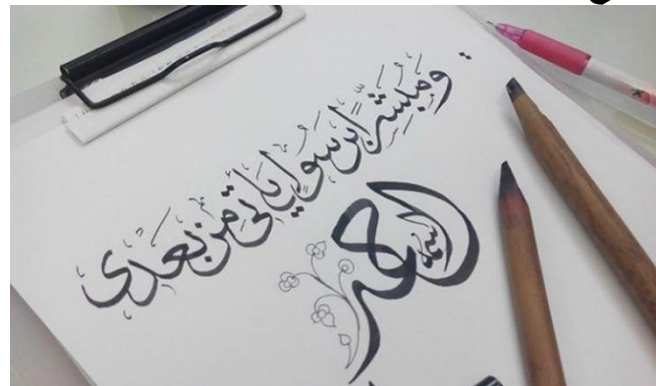 ومبشرا برسول يأتي من بعدي
اسمه احمد